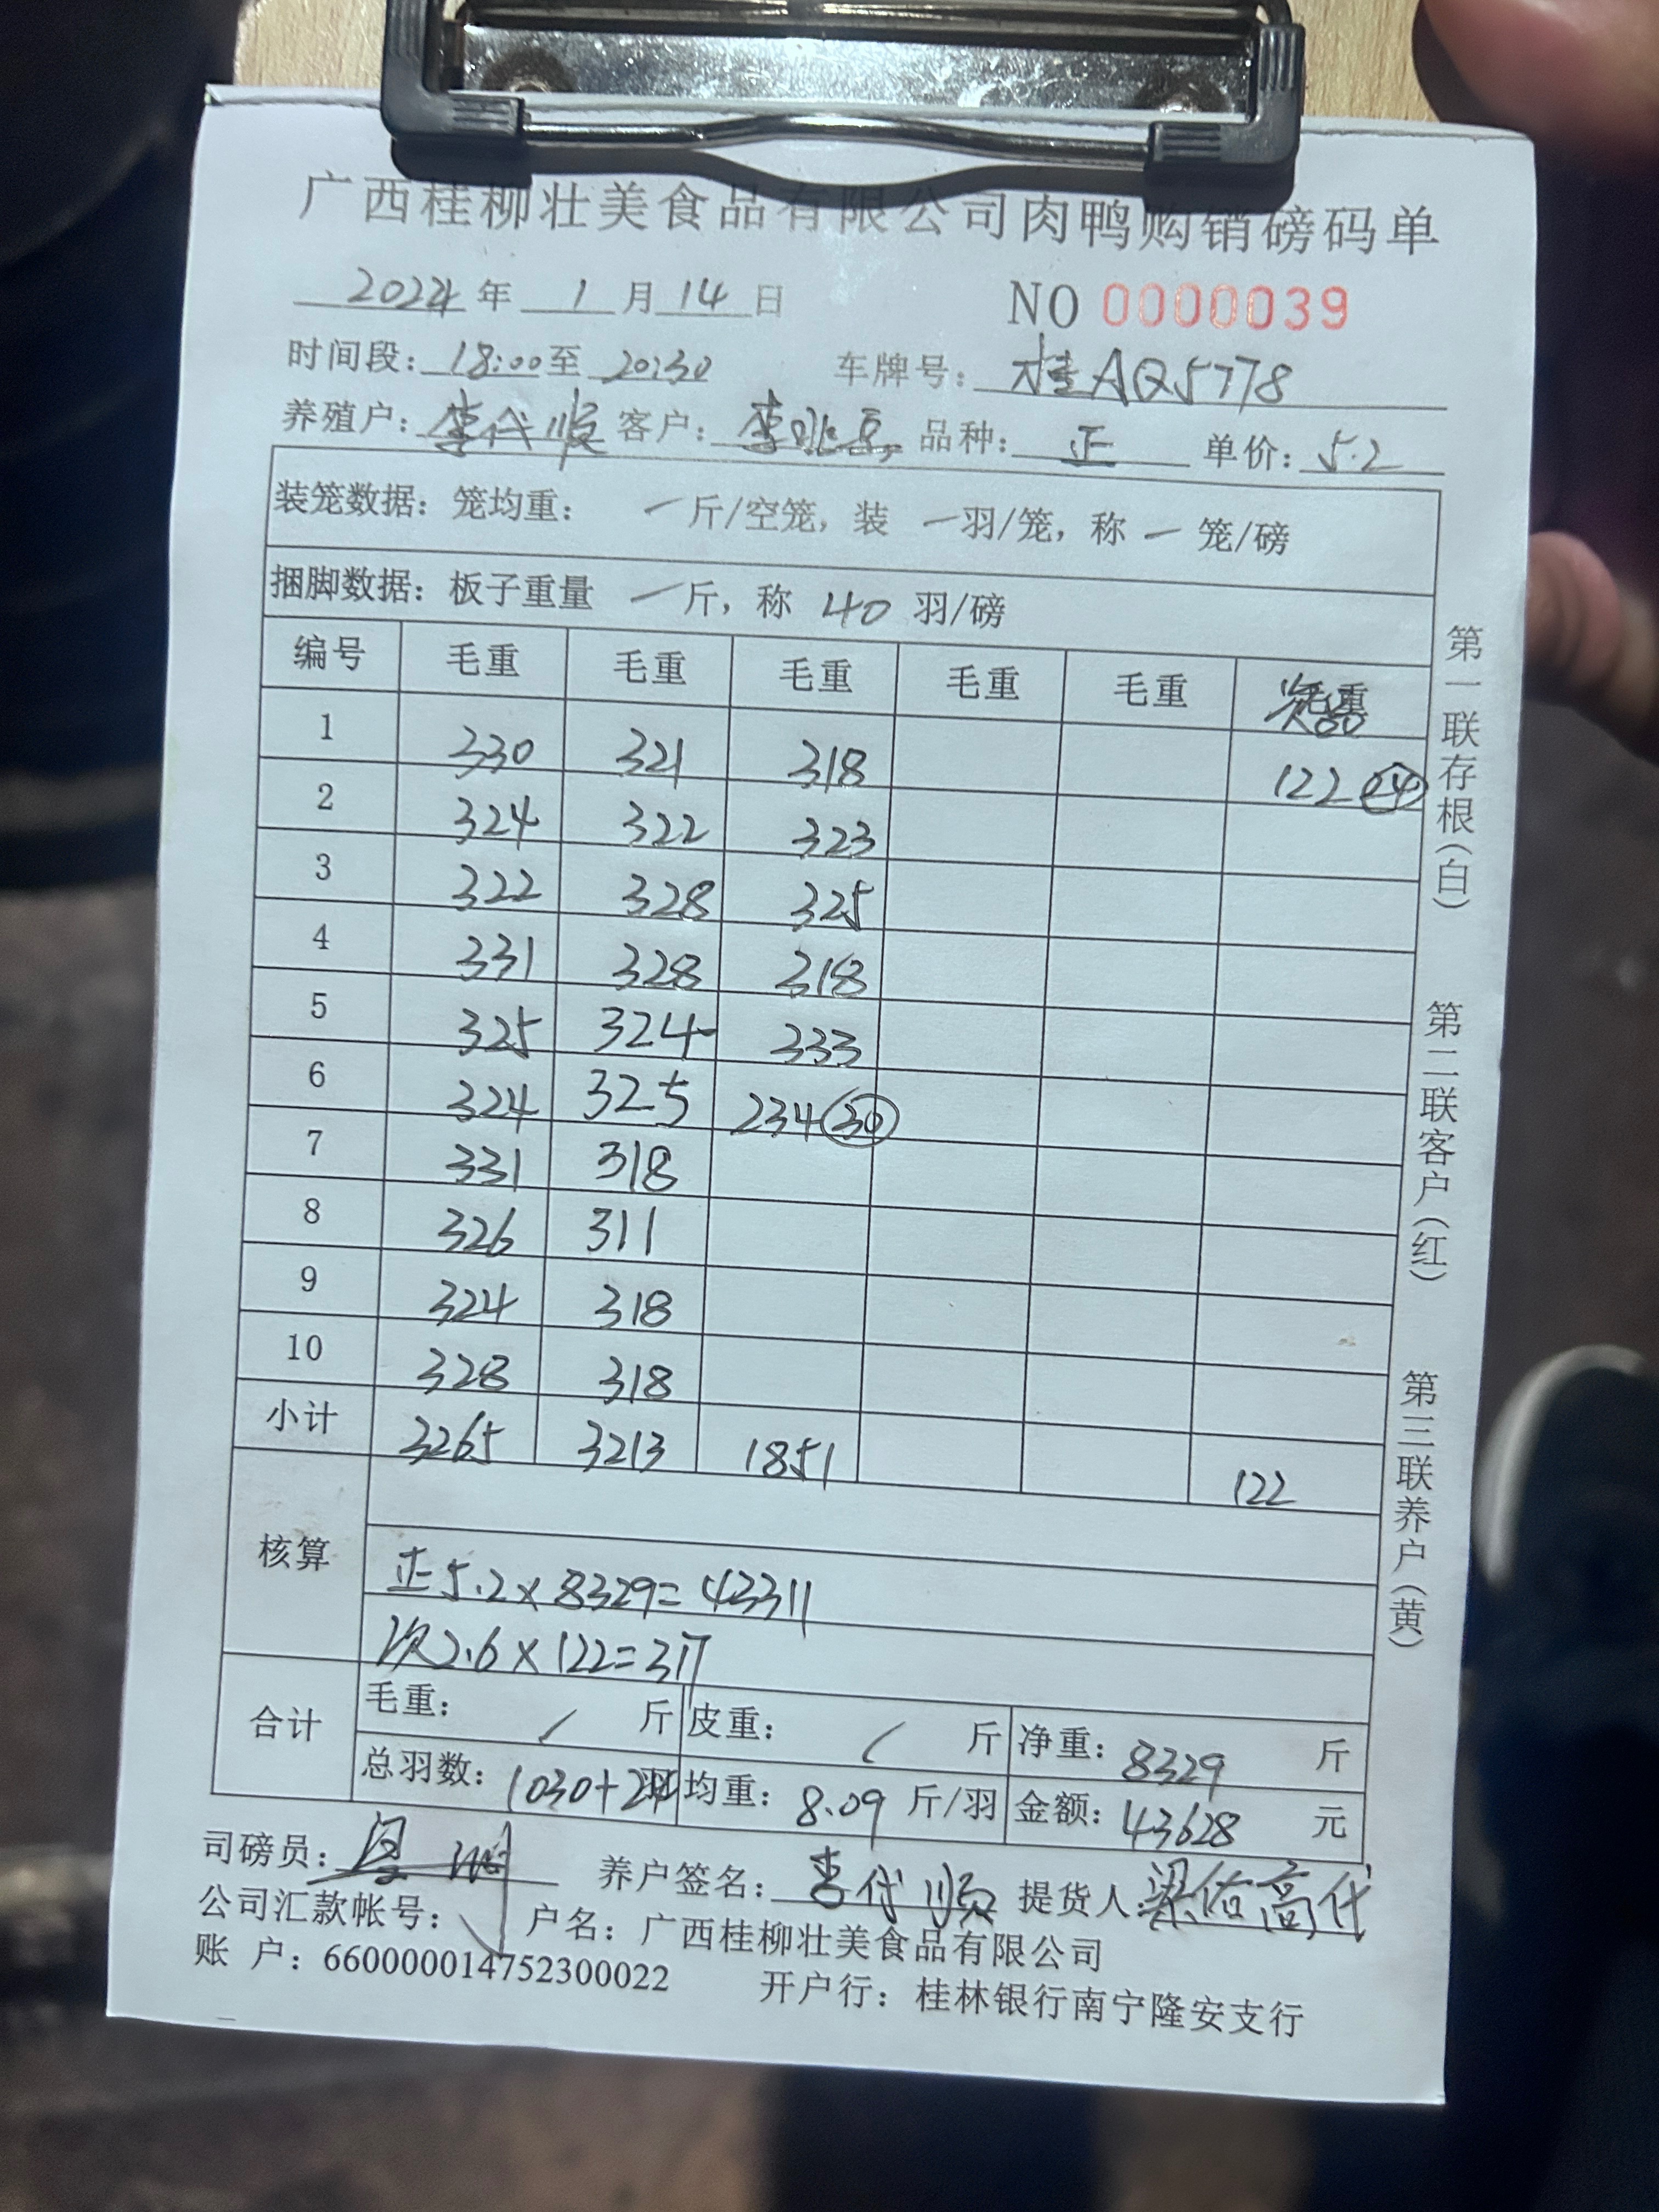 广西桂柳壮美食品有限公司肉鸭购销磅码单
2024年 1月14日 NO 0000039
时间段：18:00至 20:30 车牌号：桂AQ5778
养殖户：李代顺 客户：李 品种：正 单价：5.2
装笼数据：笼均重： 一 斤/空笼，装 一 羽/笼，称 一 笼/磅
捆脚数据：板子重量 一 斤，称 40 羽/磅
编号 毛重 毛重 毛重 毛重 毛重
1 330 321 318 122 24
2 324 322 323
3 322 328 325
4 331 328 318
5 325 324 333
6 324 325 234 30
7 331 318
8 326 311
9 324 318
10 328 318
小计 3265 3213 1851 122
核算
正5.2×8329=43311
次2.6×122=317
合计 毛重： / 斤 皮重： / 斤 净重：8329 斤
总羽数：1030+24羽 均重：8.09 斤/羽 金额：43628 元
司磅员： 养户签名：李代顺 提货人：梁佑高代
公司汇款帐号： 户名：广西桂柳壮美食品有限公司
账 户：660000014752300022 开户行：桂林银行南宁隆安支行
第一联存根（白） 第二联客户（红） 第三联养户（黄）